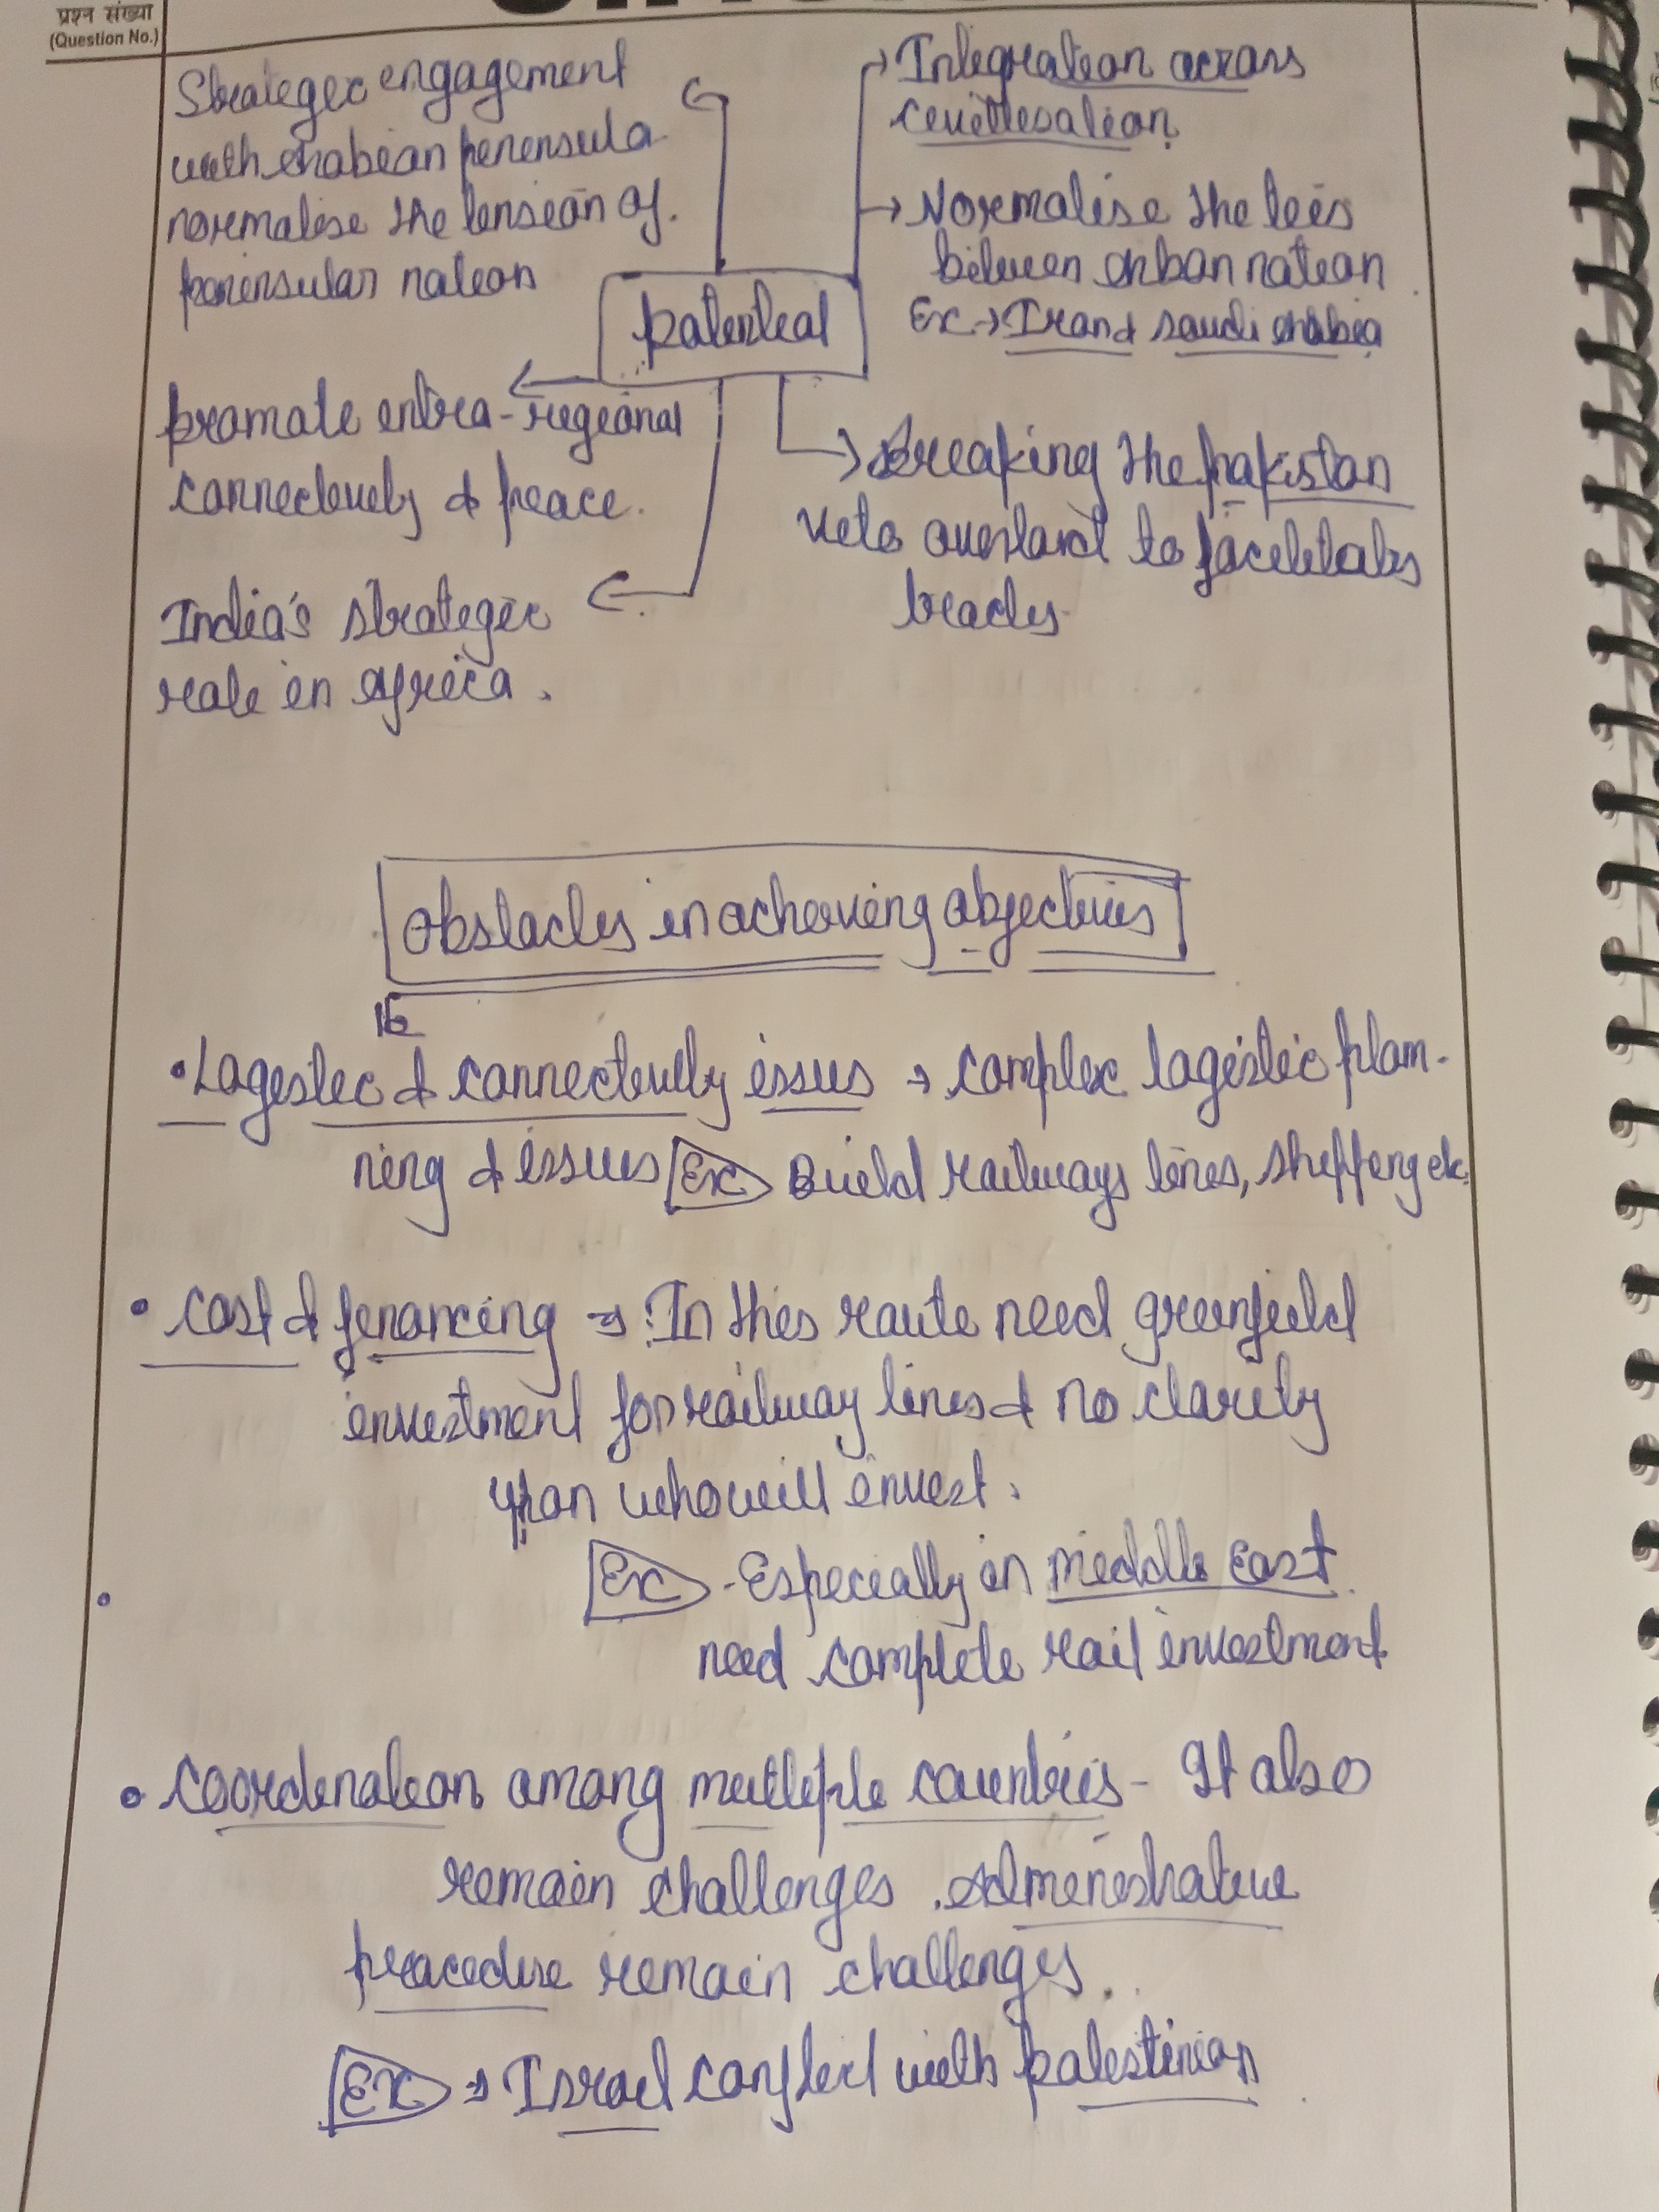 प्रश्न संख्या
(Question No.)
Strategic engagement
with Arabian peninsula
normalise the tension of
peninsular nation
→ Integration across
civilization.
→ Normalise the ties
between Arban nation
Ex → Iran & Saudi Arabia
potential
promote intra-regional
connectivity & peace.
→ Breaking the pakistan
veto overland to facilitates
trades.
India's strategic
role in Africa.
Obstacles in acheiving objectives
• Logistic & connectivity issues → complex logistic plan-
ning & issues Ex Build railways lines, shipping etc.
• Cost & financing → In this route need greenfield
investment for railway lines & no clarity
upon who will invest.
Ex - Especially in middle East
need complete rail investment
• Coordination among multiple countries - It also
remain challenges. Administrative
procedure remain challenges.
Ex → Israel conflict with palestinian